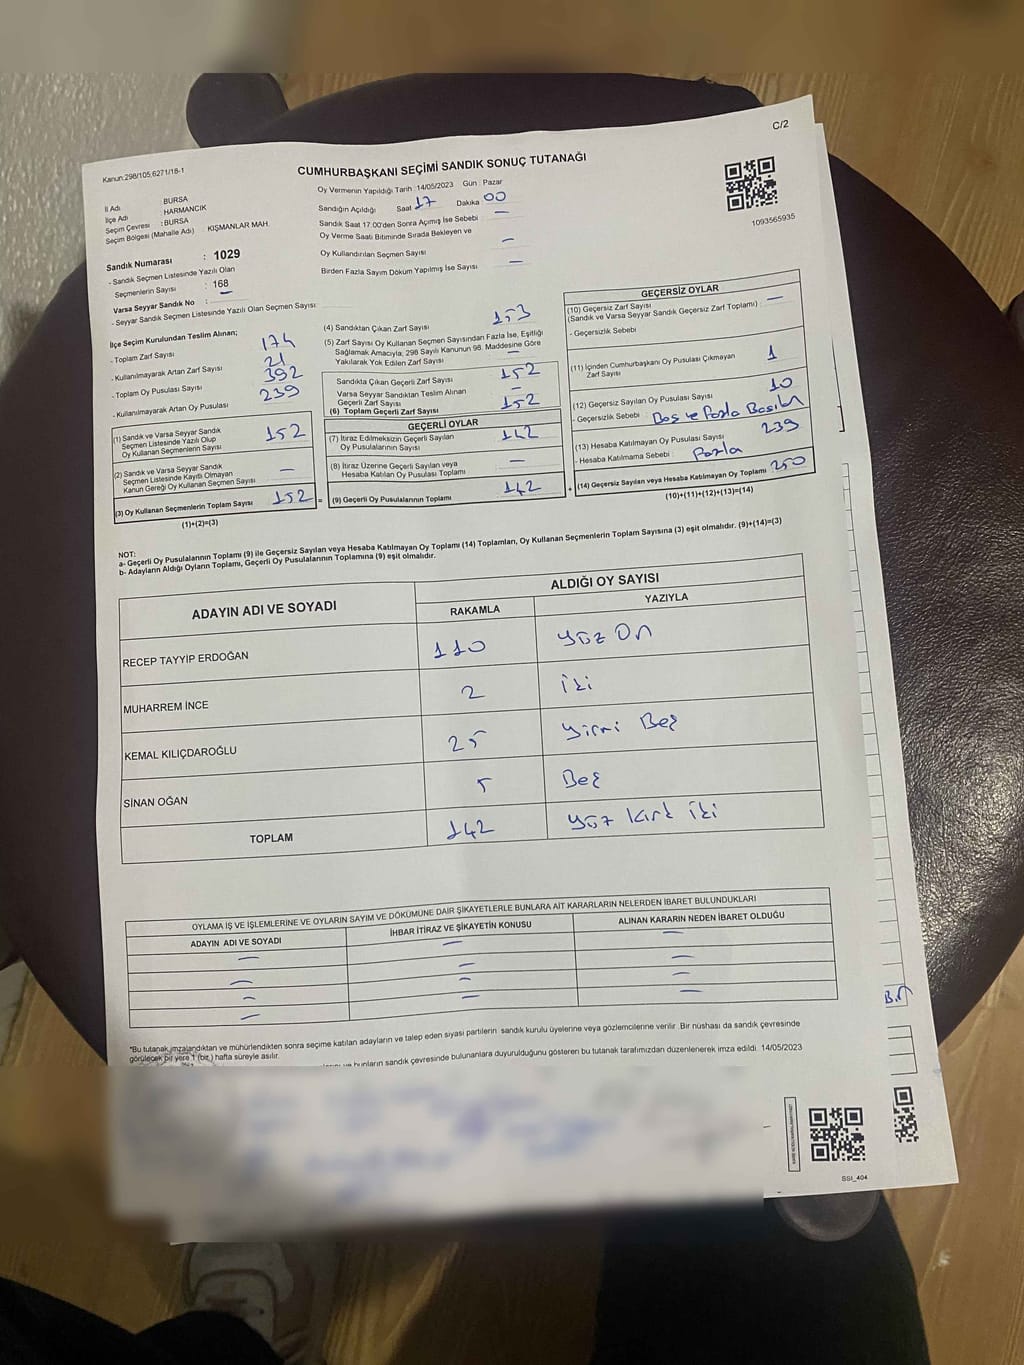 C/2
Kanun:298/105,6271/18-1
CUMHURBAŞKANI SEÇİMİ SANDIK SONUÇ TUTANAĞI
İl Adı : BURSA
İlçe Adı : HARMANCIK
Seçim Çevresi : BURSA
Seçim Bölgesi (Mahalle Adı) : KIŞMANLAR MAH.
Oy Vermenin Yapıldığı Tarih : 14/05/2023 Gün : Pazar
Sandığın Açıldığı Saat 17 Dakika 00
Sandık Saat 17.00'den Sonra Açımış İse Sebebi —
Oy Verme Saati Bitiminde Sırada Bekleyen ve
Oy Kullandırılan Seçmen Sayısı —
Birden Fazla Sayım Döküm Yapılmış İse Sayısı —
1093565935
Sandık Numarası : 1029
- Sandık Seçmen Listesinde Yazılı Olan
Seçmenlerin Sayısı : 168
Varsa Seyyar Sandık No : —
- Seyyar Sandık Seçmen Listesinde Yazılı Olan Seçmen Sayısı:
İlçe Seçim Kurulundan Teslim Alınan;
- Toplam Zarf Sayısı 174
- Kullanılmayarak Artan Zarf Sayısı 21
- Toplam Oy Pusulası Sayısı 392
- Kullanılmayarak Artan Oy Pusulası 239
(1) Sandık ve Varsa Seyyar Sandık
Seçmen Listesinde Yazılı Olup
Oy Kullanan Seçmenlerin Sayısı 152
(2) Sandık ve Varsa Seyyar Sandık
Seçmen Listesinde Kayıtlı Olmayan
Kanun Gereği Oy Kullanan Seçmen Sayısı —
(3) Oy Kullanan Seçmenlerin Toplam Sayısı 152 =
(1)+(2)=(3)
(4) Sandıktan Çıkan Zarf Sayısı 153
(5) Zarf Sayısı Oy Kullanan Seçmen Sayısından Fazla İse, Eşitliği
Sağlamak Amacıyla; 298 Sayılı Kanunun 98. Maddesine Göre
Yakılarak Yok Edilen Zarf Sayısı —
Sandıkta Çıkan Geçerli Zarf Sayısı 152
Varsa Seyyar Sandıktan Teslim Alınan
Geçerli Zarf Sayısı —
(6) Toplam Geçerli Zarf Sayısı 152
GEÇERLİ OYLAR
(7) İtiraz Edilmeksizin Geçerli Sayılan
Oy Pusulalarının Sayısı 142
(8) İtiraz Üzerine Geçerli Sayılan veya
Hesaba Katılan Oy Pusulası Toplamı —
(9) Geçerli Oy Pusulalarının Toplamı 142 +
GEÇERSİZ OYLAR
(10) Geçersiz Zarf Sayısı
(Sandık ve Varsa Seyyar Sandık Geçersiz Zarf Toplamı) : —
- Geçersizlik Sebebi
(11) İçinden Cumhurbaşkanı Oy Pusulası Çıkmayan
Zarf Sayısı 1
(12) Geçersiz Sayılan Oy Pusulası Sayısı 10
- Geçersizlik Sebebi Boş ve fazla Basılan
(13) Hesaba Katılmayan Oy Pusulası Sayısı 239
- Hesaba Katılmama Sebebi : Fazla
(14) Geçersiz Sayılan veya Hesaba Katılmayan Oy Toplamı 250
(10)+(11)+(12)+(13)=(14)
NOT:
a- Geçerli Oy Pusulalarının Toplamı (9) ile Geçersiz Sayılan veya Hesaba Katılmayan Oy Toplamı (14) Toplamları, Oy Kullanan Seçmenlerin Toplam Sayısına (3) eşit olmalıdır. (9)+(14)=(3)
b- Adayların Aldığı Oyların Toplamı, Geçerli Oy Pusulalarının Toplamına (9) eşit olmalıdır.
ADAYIN ADI VE SOYADI ALDIĞI OY SAYISI
RAKAMLA YAZIYLA
RECEP TAYYİP ERDOĞAN 110 Yüz On
MUHARREM İNCE 2 İki
KEMAL KILIÇDAROĞLU 25 Yirmi Beş
SİNAN OĞAN 5 Beş
TOPLAM 142 Yüz Kırk İki
OYLAMA İŞ VE İŞLEMLERİNE VE OYLARIN SAYIM VE DÖKÜMÜNE DAİR ŞİKAYETLERLE BUNLARA AİT KARARLARIN NELERDEN İBARET BULUNDUKLARI
ADAYIN ADI VE SOYADI İHBAR İTİRAZ VE ŞİKAYETİN KONUSU ALINAN KARARIN NEDEN İBARET OLDUĞU
— — —
— — —
— — —
— — —
*Bu tutanak,imzalandıktan ve mühürlendikten sonra seçime katılan adayların ve talep eden siyasi partilerin sandık kurulu üyelerine veya gözlemcilerine verilir. Bir nüshası da sandık çevresinde
görülecek bir yere 1 (bir) hafta süreyle asılır.
ve bunların sandık çevresinde bulunanlara duyurulduğunu gösteren bu tutanak tarafımızdan düzenlenerek imza edildi. 14/05/2023
SSI_404